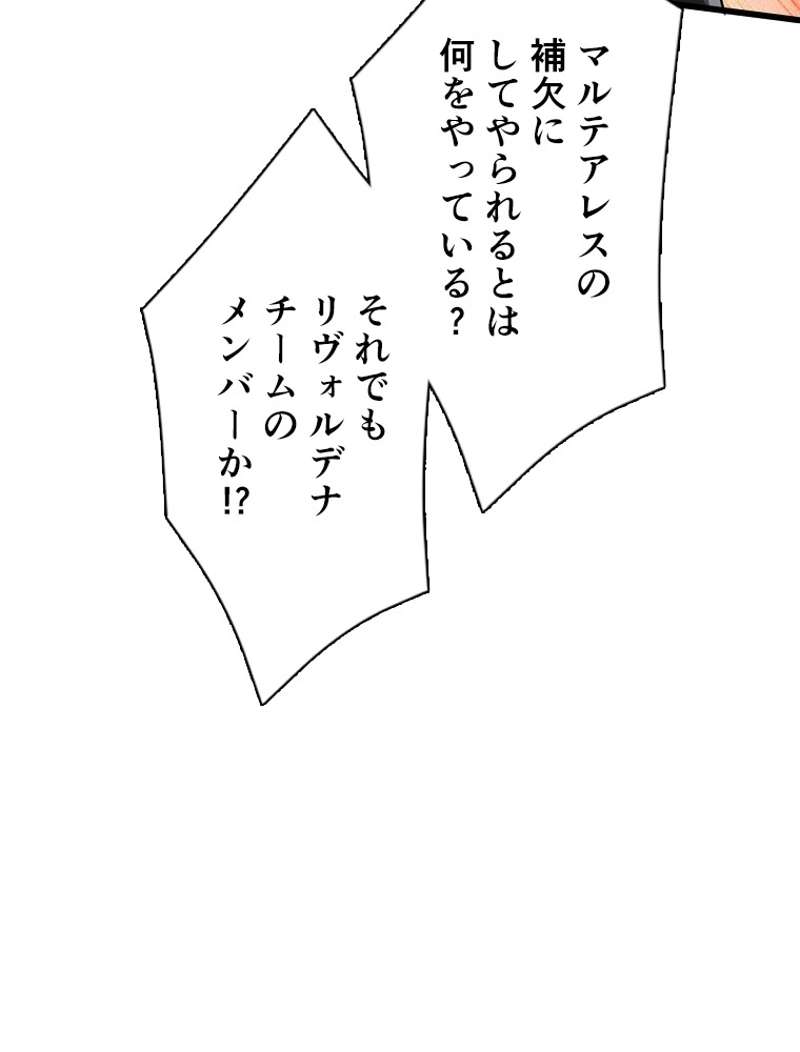 マルテアレスの
補欠に
してやられるとは
何をやっている？
それでも
リヴォルデナ
チームの
メンバーか!?